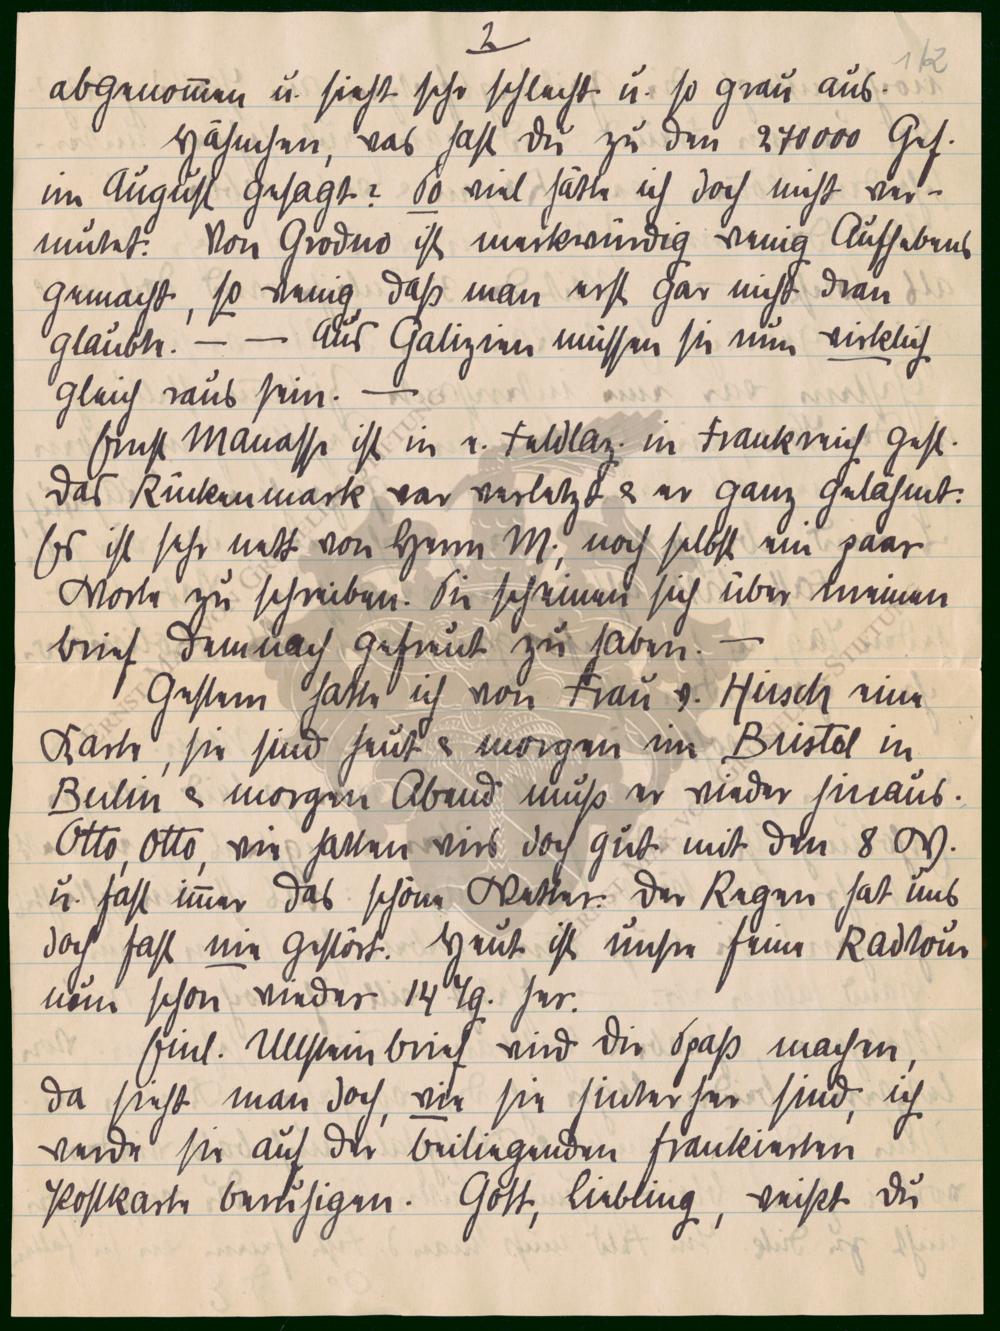 2
1/2
abgenom̄en u. sieht sehr schlecht u. so grau aus.
Hähnchen, was hast Du zu den 270000 Gef.
im August gesagt? So viel hätte ich doch nicht ver-
mutet. Von Grodno ist merkwürdig wenig Aufhebens
gemacht, so wenig, daß man erst gar nicht dran
glaubte. — — Aus Galizien müssen sie nun wirklich
gleich raus sein. —
Ernst Manasse ist in e. Feldlaz. in Frankreich gest.
Das Rückenmark war verletzt & er ganz gelähmt.
Es ist sehr nett von Herrn M., noch selbst ein paar
Worte zu schreiben. Sie scheinen sich über meinen
brief demnach gefreut zu haben. —
Gestern hatte ich von Frau v. Hirsch eine
Karte, sie sind heut & morgen im Bristol in
Berlin & morgen Abend muß er wieder hinaus.
Otto, Otto, wie hatten wirs doch gut mit den 8 W.
u. fast im̄er das schöne Wetter. Der Regen hat uns
doch fast nie gestört. Heut ist unsre feine Radtour
nun schon wieder 14 Tg. her.
Einl. Ullsteinbrief wird Dir Spaß machen,
da sieht man doch, wie sie hinterher sind, ich
werde sie auf der beiliegenden frankierten
Postkarte beruhigen. Gott, Liebling, weißt Du